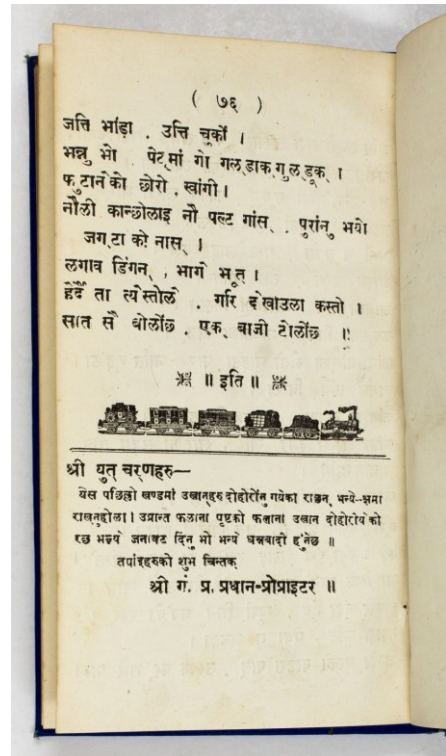 ( ७६ )
जत्ति भांड़ा . उत्ति चूकों ।
भन्नु भो . पेट्मां गो गल्डाक् गुल्डूक् ।
फुटानेको छोरो . खांगी ।
नौली कान्छोलाइ नौ पल्ट गांस् . पुरांनु भयो
जग्टा को नास् ।
लगाव डिंगन् , भागे भूत् ।
हेर्दै ता त्येस्तोले . गरि देखाउला कस्तो ।
सात सै बोलोंछ . एक् बाजी टोलोंछ ॥
॥ इति ॥
श्री युत् चरणहरु—
येस पछिल्लो खण्डमां उखान्हरु दोहोरोंनु गयेका राछन्, भन्ये--क्षमा
राख्नुहोला । उप्रान्त फलाना पृष्टको फलाना उखान दोहोरोये को
रछ भन्ये जनावट दिनु भो भन्ये धन्नवादी हुंनेछ ॥
तपांइहरुको शुभ चिन्तक्
श्री गं. प्र. प्रधान-प्रोप्राइटर ॥